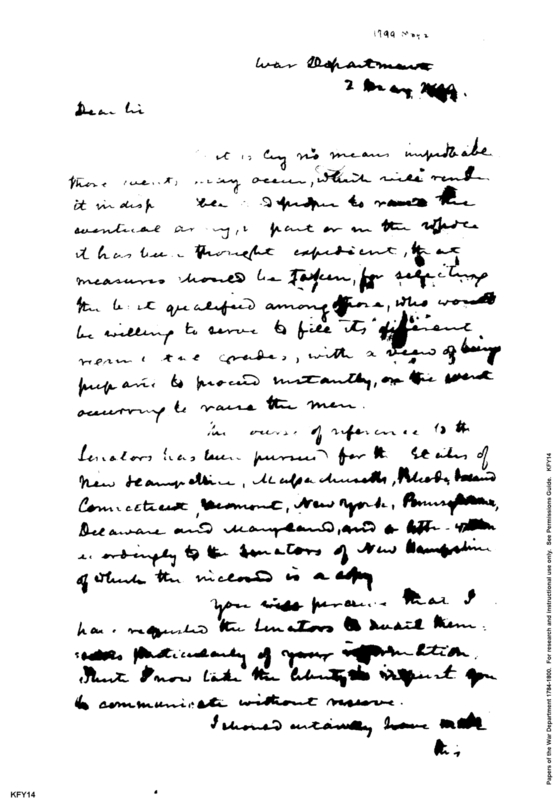 1799 May 2
War Department
2 May 1799.
Dear Sir
it is by no means improbable
those events may occur, which will render
it indisp proper to raise the
eventual army, in part or in the whole
it has been thought expedient, that
measures should be taken, for selecting
the best qualified among those, who would
be willing to serve to fill its different
grades, with a view of being
prepared to proceed instantly, on the event
occurring to raise the men.
This course of reference to the
Senators has been pursued for the States of
New Hampshire, Massachusetts, Rhode Island
Connecticut, Vermont, New York, Pennsylvania,
Delaware and Maryland, and a letter written
accordingly to the Senators of New Hampshire
of which the inclosed is a copy
You will perceive that I
have requested the Senators to avail them-
selves particularly of your information,
that I now take the liberty to request you
to communicate without reserve.
I should certainly have made
this
KFY14
Papers of the War Department 1784-1800. For research and instructional use only. See Permissions Guide. KFY14